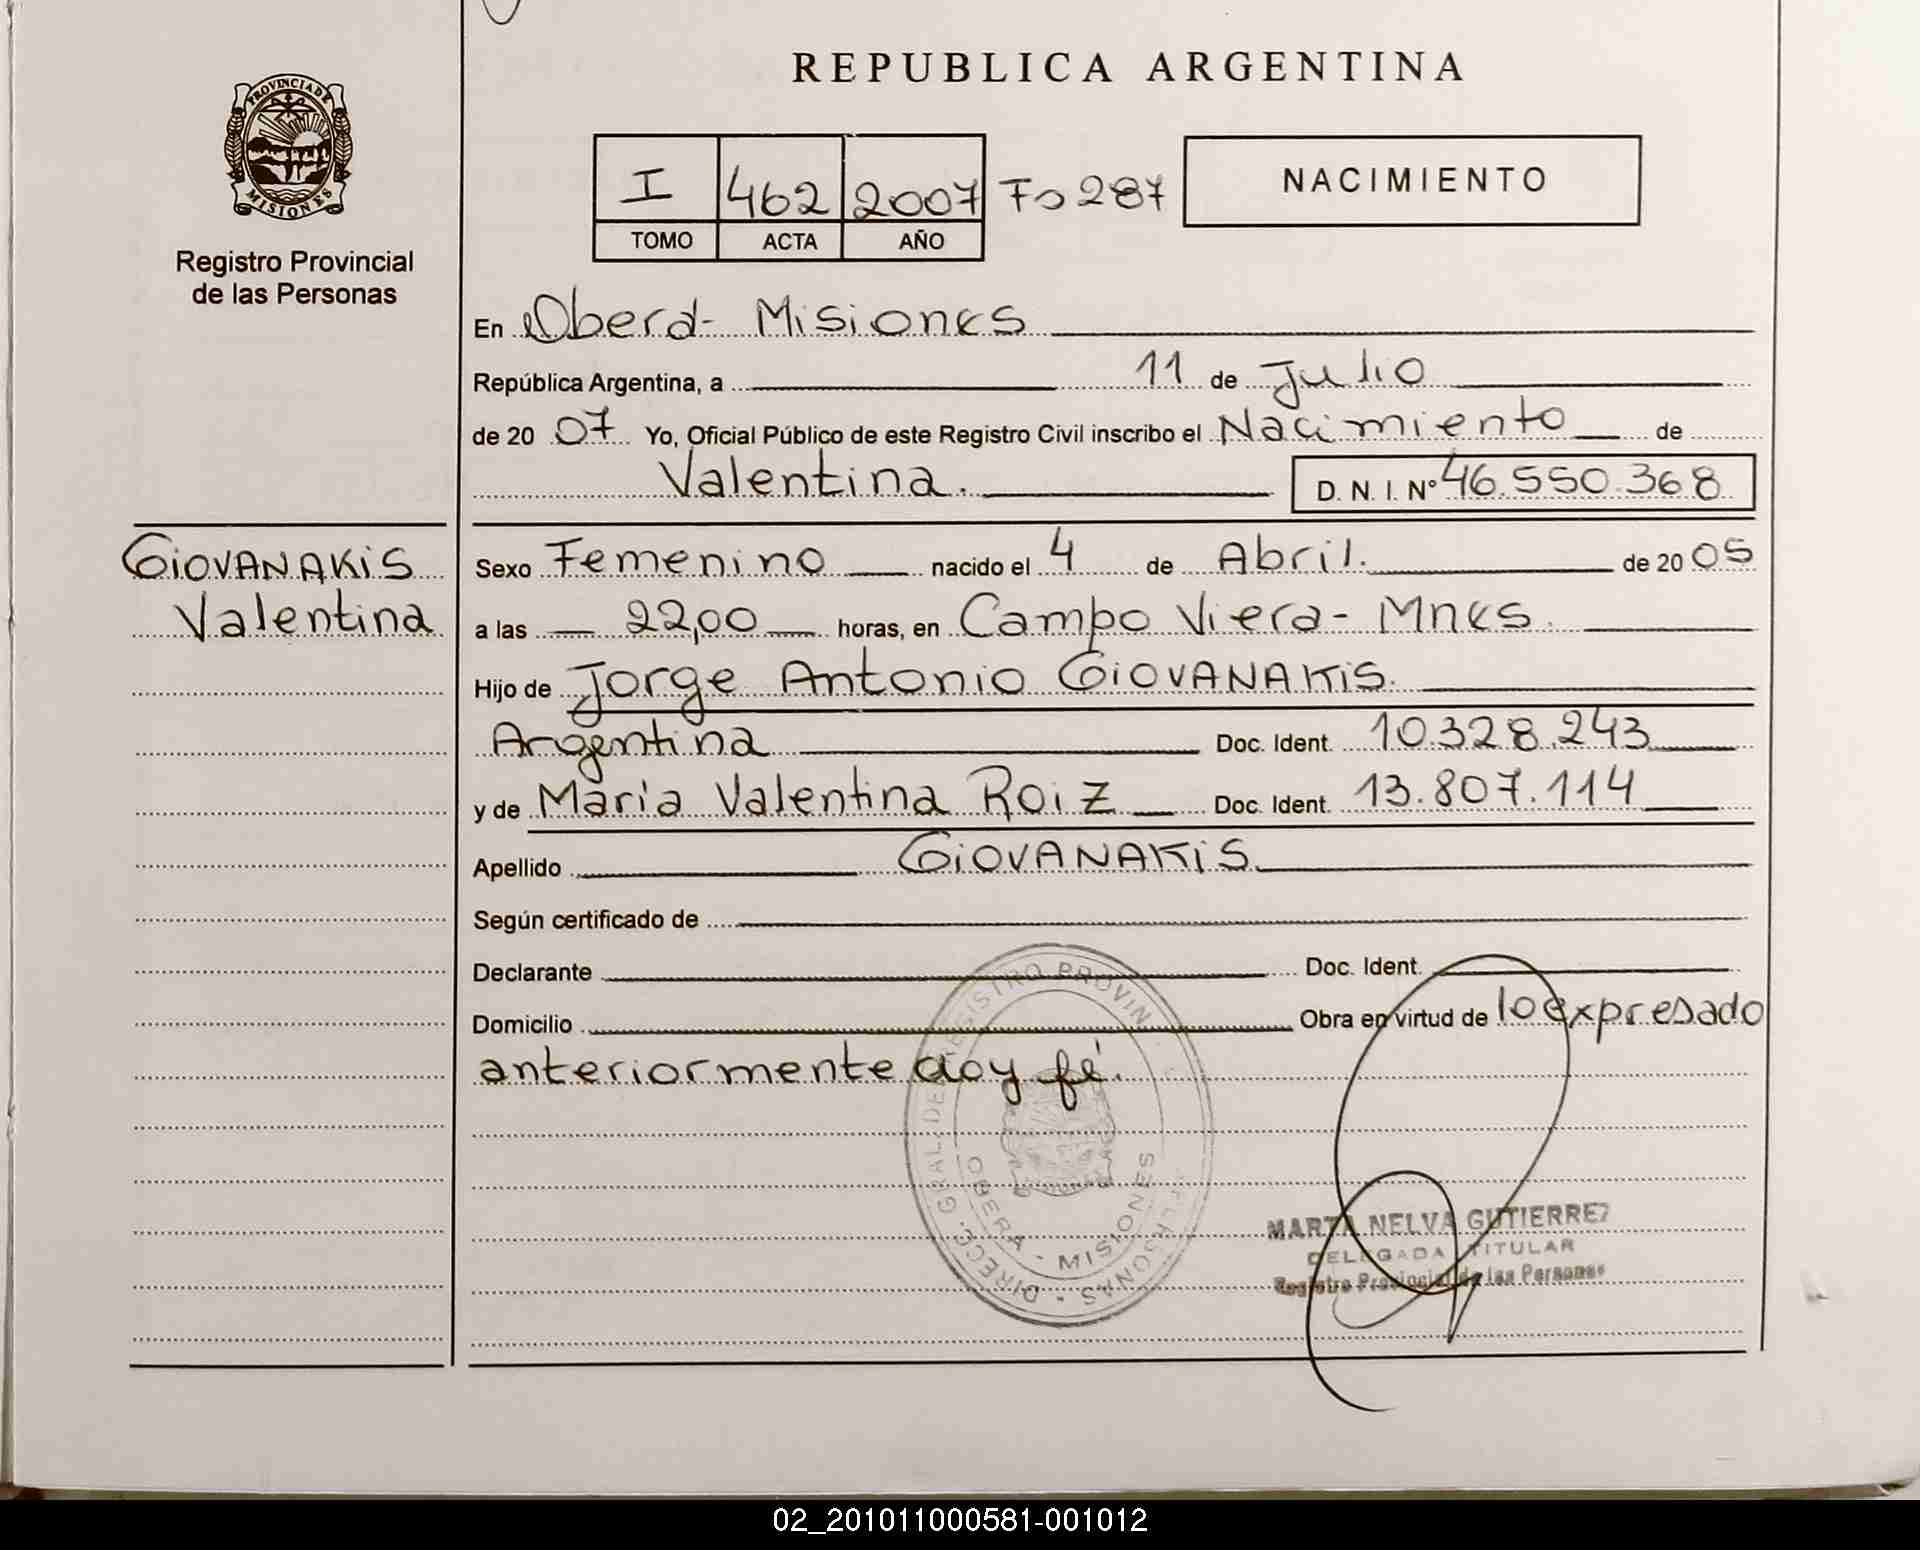 REPUBLICA ARGENTINA
PROVINCIA DE
MISIONES
Registro Provincial
de las Personas
I 462 2007 Fo 287
TOMO ACTA AÑO
NACIMIENTO
En Oberá - Misiones
República Argentina, a 11 de Julio
de 20 07 Yo, Oficial Público de este Registro Civil inscribo el Nacimiento de
Valentina. D. N. I. N° 46.550.368
GIOVANAKIS
Valentina
Sexo Femenino nacido el 4 de Abril. de 20 05
a las 22,00 horas, en Campo Viera - Mnes.
Hijo de Jorge Antonio GIOVANAKIS.
Argentina Doc. Ident. 10.328.243
y de María Valentina Roiz Doc. Ident. 13.807.114
Apellido GIOVANAKIS.
Según certificado de
Declarante Doc. Ident.
Domicilio Obra en virtud de lo expresado
anteriormente doy fé.
DIRECC. GRAL. DE REGISTRO PROVIN PERSONAS
OBERA - MISIONES
MARTA NELVA GUTIERREZ
DELEGADA TITULAR
Registro Provincial de las Personas
02_201011000581-001012